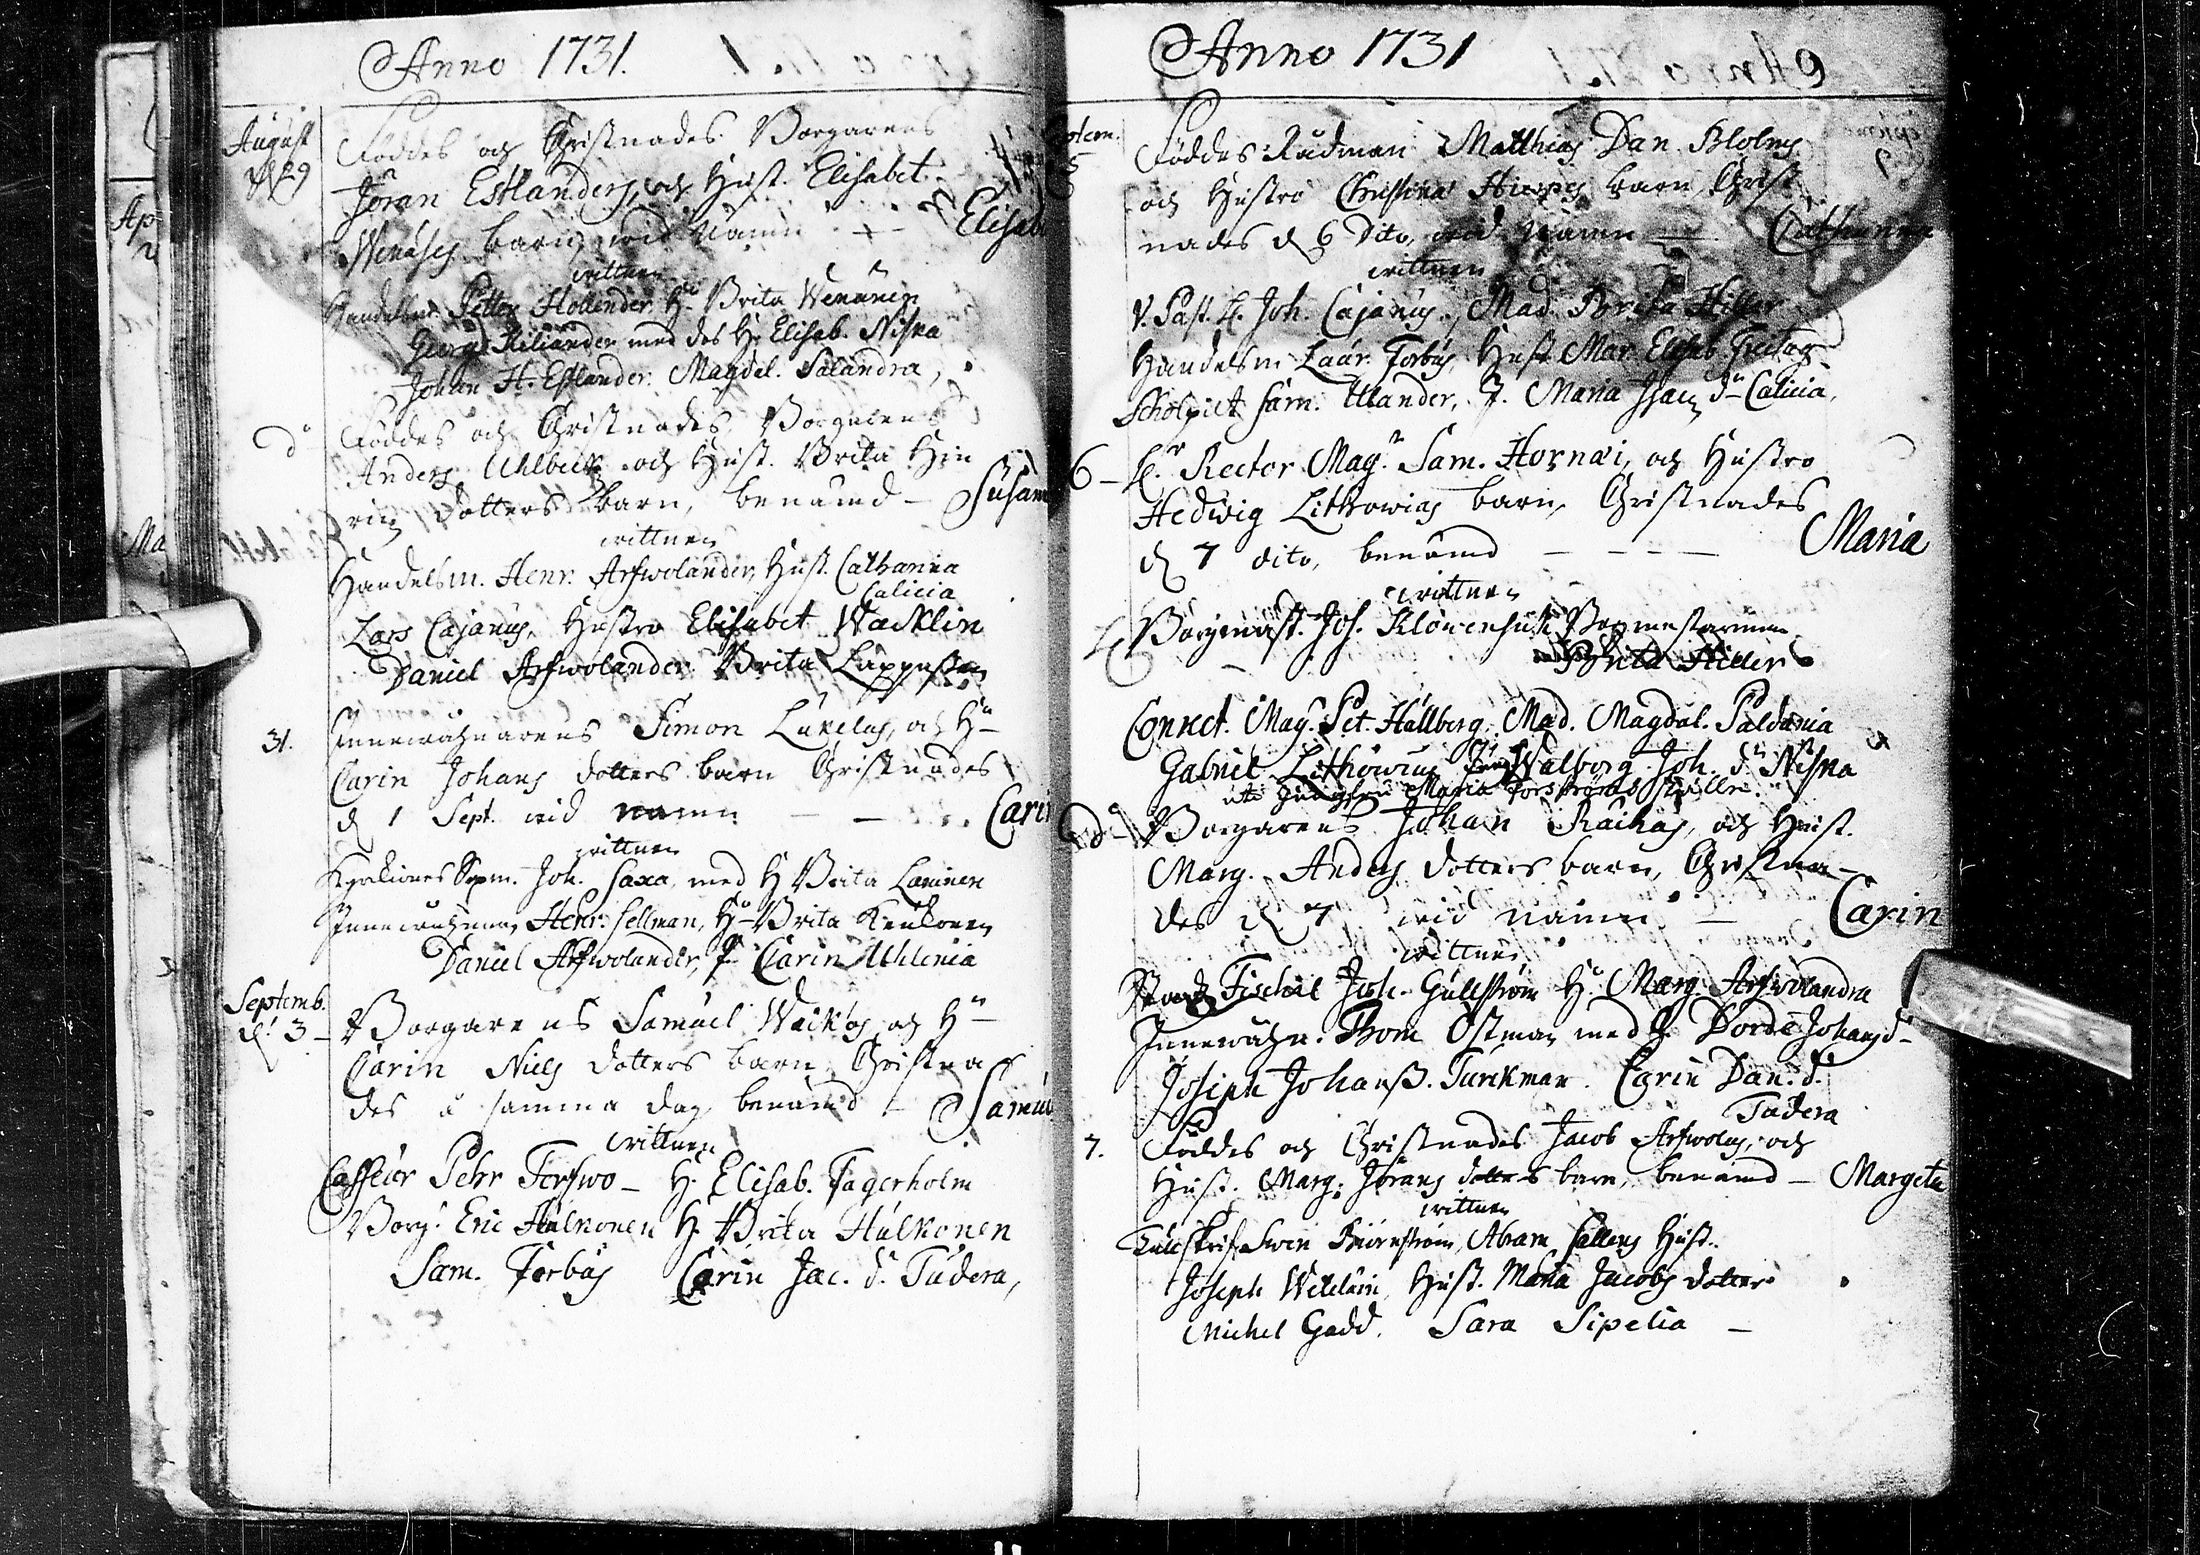 Anno 1731.
August
d 29
Föddes och Christnades Borgarens
Jöran Estlanders, och Hust. Elisabet
barn, wid Namn Elisab
wittnen
Handelsm. Petter Hollender Hu Brita Wenänen
Georg Kiliander med des H. Elisab. Nisna
Johan H. Estlander. Magdal. Salandra,
do
Föddes och Christnades Borgarens
Anders Uhlbeck och Hust. Brita Hin
rix dotters barn, benämd - Susan
wittnen
Handelsm. Henr. Arfwolander, Hust. Catharina
Calicia
Lars Cajanus, Hustro Elisabet Wacklin
Daniel Arfwolander Brita
31.
Innewåhnarens Simon Lukelas, och Hu
Carin Johans dotters barn Christnades
d 1 Sept. wid namn - - Cari
wittnen
Joh. Saxa, med H Brita Laminen
Innewåhnar Henr. Sellman, Hu Brita Keukonen
Daniel Arfwolander, P. Carin Uhlenia
Septemb.
d. 3 -
Borgarens Samuel och Hu
Carin Niels dotters barn, Christna
des å samma dag, benämd - Samu
wittnen
Casseur Pehr Forfwo - H. Elisab. Fagerholm
Borg. Eric Hulkonen H. Brita Hulkonen
Sam. Forbus Carin Jac. d. Tudera,
Anno 1731
ptem.
5
Föddes Rådman Matthias Dan. Blolms
och Hustro Christina barn Christ
nades d 6 Dito, wid Namn Catharina
wittnen
V. Past. H. Joh. Cajanus, Mad. Brita Hiller
Handelsm Laur. Forbus, Hust. Mar. Elisab
Sam. Ulander, J. Maria Isacs dr Calicia,
6 -
Hr Rector Magr Sam. Hornæi, och Hustro
Hedwig Lithowias barn, Christnades
d 7 dito, benämd - - - - Maria
wittnen
Borgmäst. Joh. Borgmestarinnan
Brita Hiller
Conrect. Mag. Pet. Hällberg. Mad. Magdal. Paldania
Gabriel Lithowius Walborg Joh. dr Nisna
Jungfru Maria
do
Borgarens Johan Raihas, och Hust.
Marg. Anders dotters barn, Christna-
des d 7 wid namn - Carin
wittnen
Fischal Joh. Gullström Hu Marg. Arfwolandra
Innewåhn. Thom Östman med H. Dorde Johans dr
Joseph Johanß. Turckman. Carin Dan. d.
Tudera
7.
Föddes och Christnades Jacob Arfwolas, och
Hust. Marg. Jörans dotters barn, benämd - Margeta
wittnen
Swen Biörnström, Abram Hust.
Joseph Hust. Maria Jacobs dotter
Michel Gadd. Sara Sipelia -